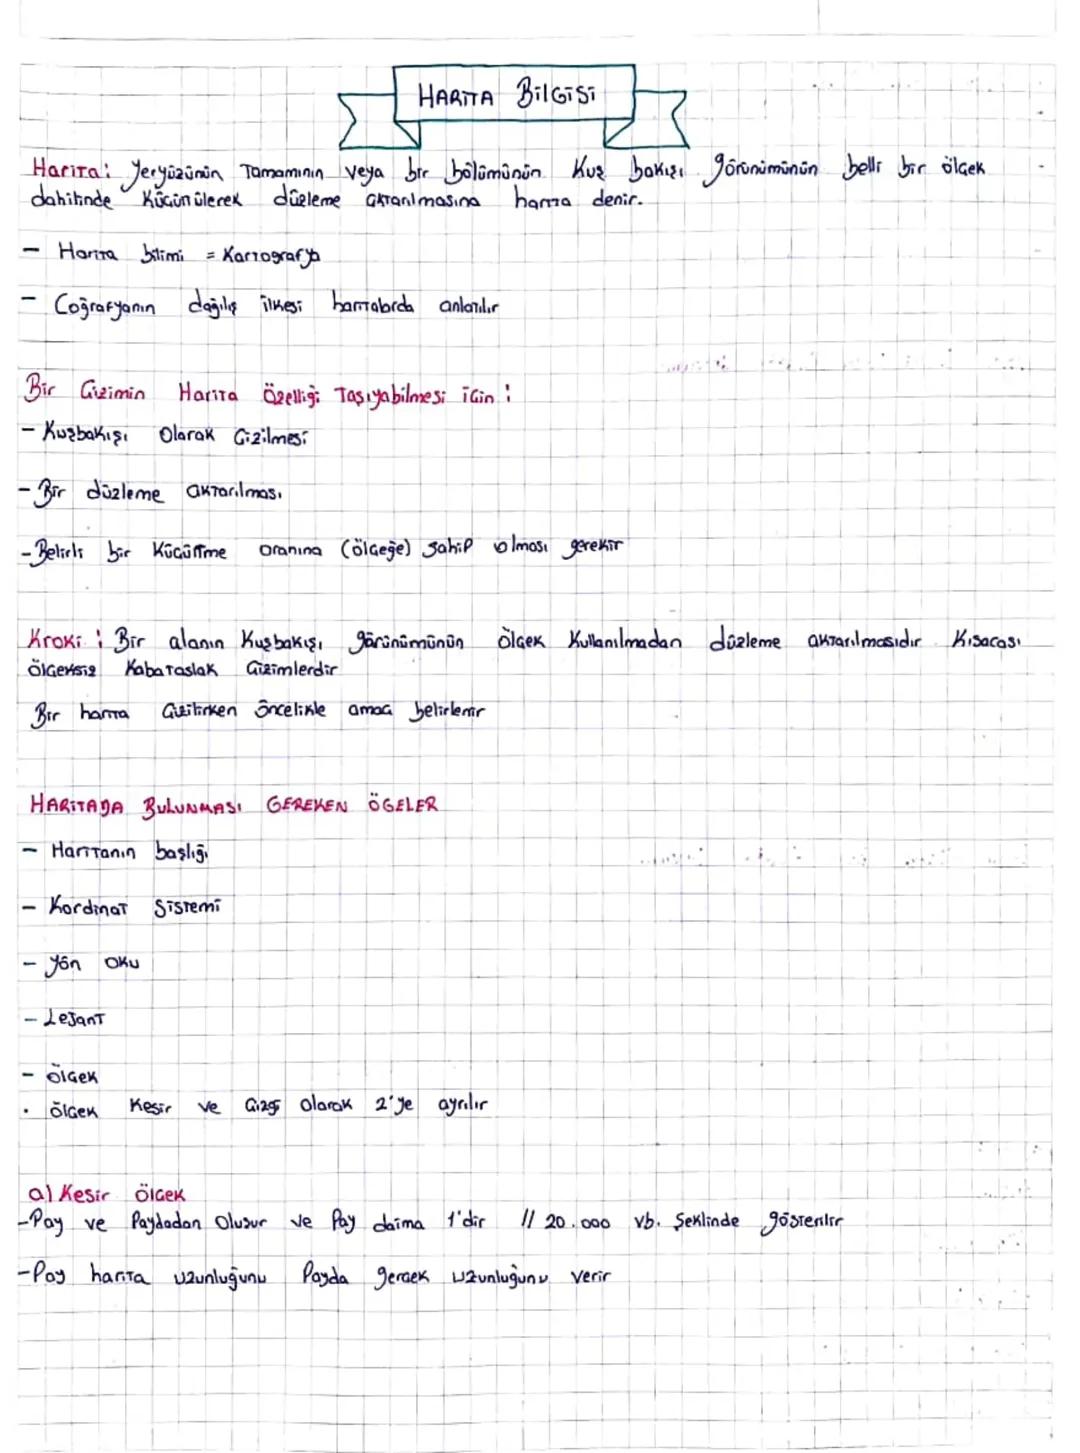 HARİTA BİLGİSİ
Harita: Yeryüzünün Tamamının veya bir bölümünün Kuş bakışı görünümünün belli bir ölçek
dahilinde Küçültülerek düzleme aktarılmasına harita denir.
- Harita bilimi = Kartografya
- Coğrafyanın dağılış ilkesi haritalarda anlatılır
Bir Çizimin Harita Özelliği Taşıyabilmesi için :
- Kuşbakışı Olarak Çizilmesi
- Bir düzleme aktarılması
- Belirli bir Küçültme oranına (ölçeğe) sahip olması gerekir
Kroki : Bir alanın Kuşbakışı görünümünün ölçek Kullanılmadan düzleme aktarılmasıdır Kısacası
ölçeksiz Kabataslak Çizimlerdir
Bir harita Çizilirken öncelikle amaç belirlenir
HARİTADA BULUNMASI GEREKEN ÖGELER
- Haritanın başlığı
- Kordinat Sistemi
- Yön oku
- Lejant
- ölçek
· ölçek Kesir ve Çizgi olarak 2'ye ayrılır
a) Kesir ölçek
- Pay ve Paydadan Olusur ve Pay daima 1'dir 1/ 20.000 vb. Şeklinde gösterilir
- Pay harita uzunluğunu Payda gerçek uzunluğunu verir